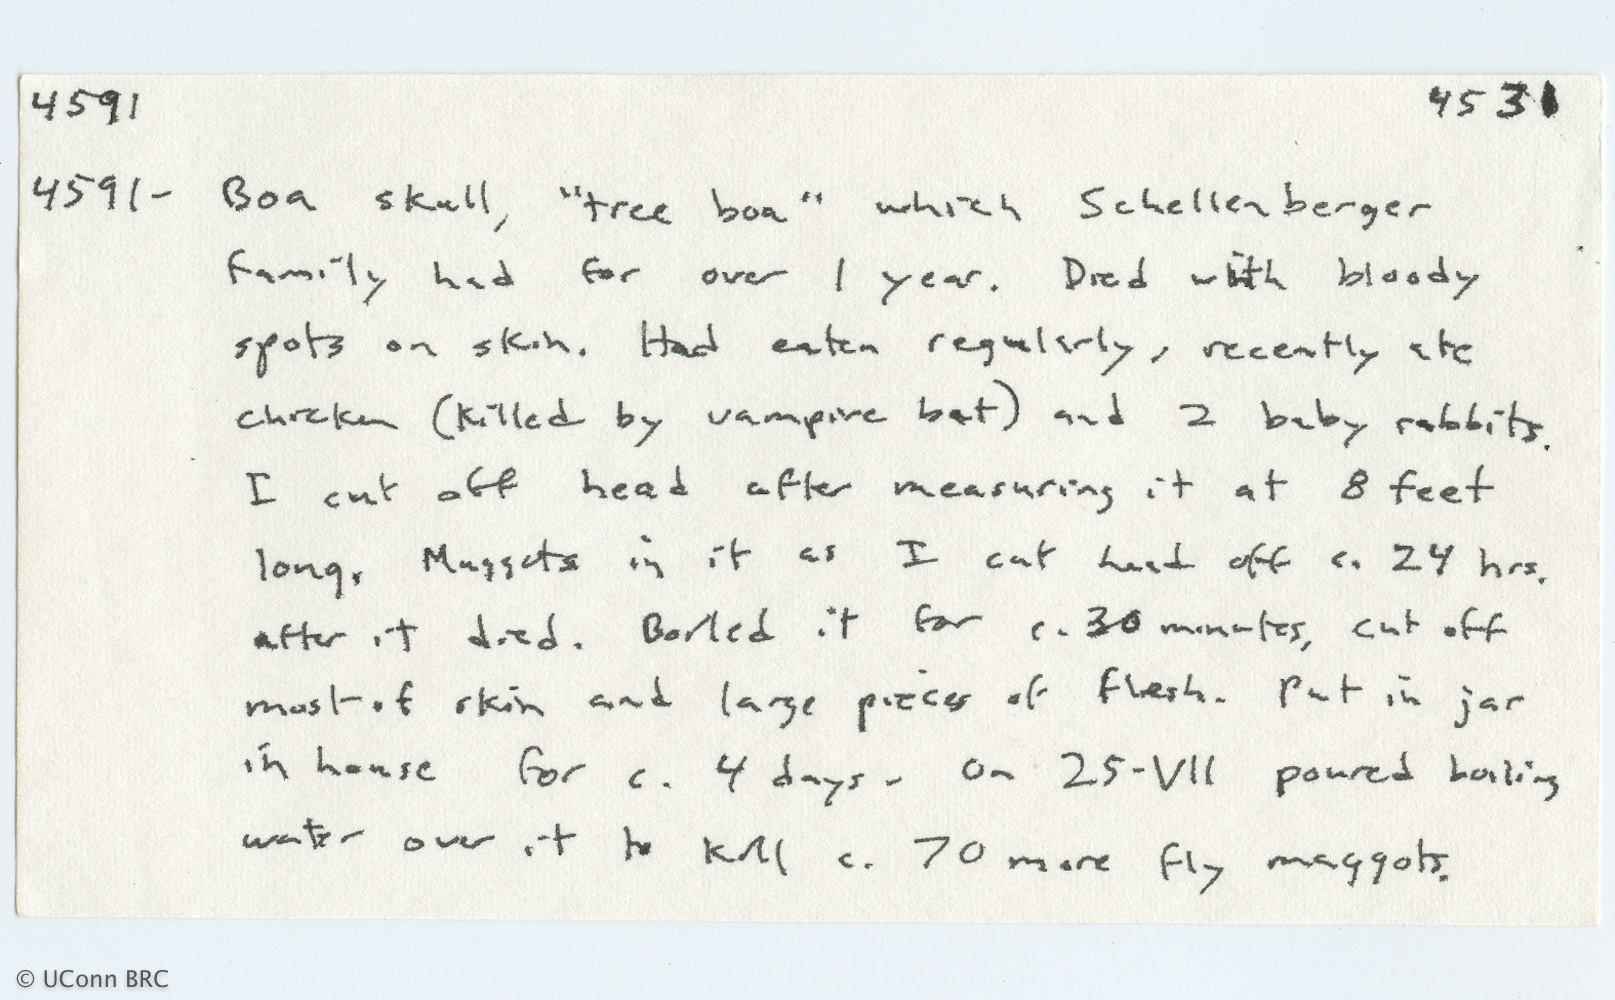 4591 4531
4591- Boa skull, "tree boa" which Schellenberger
family had for over 1 year. Died with bloody
spots on skin. Had eaten regularly, recently ate
chicken (killed by vampire bat) and 2 baby rabbits.
I cut off head after measuring it at 8 feet
long. Maggots in it as I cut head off c. 24 hrs.
after it died. Boiled it for c. 30 minutes, cut off
most of skin and large pieces of flesh. Put in jar
in house for c. 4 days. On 25-VII poured boiling
water over it to kill c. 70 more fly maggots.
© UConn BRC